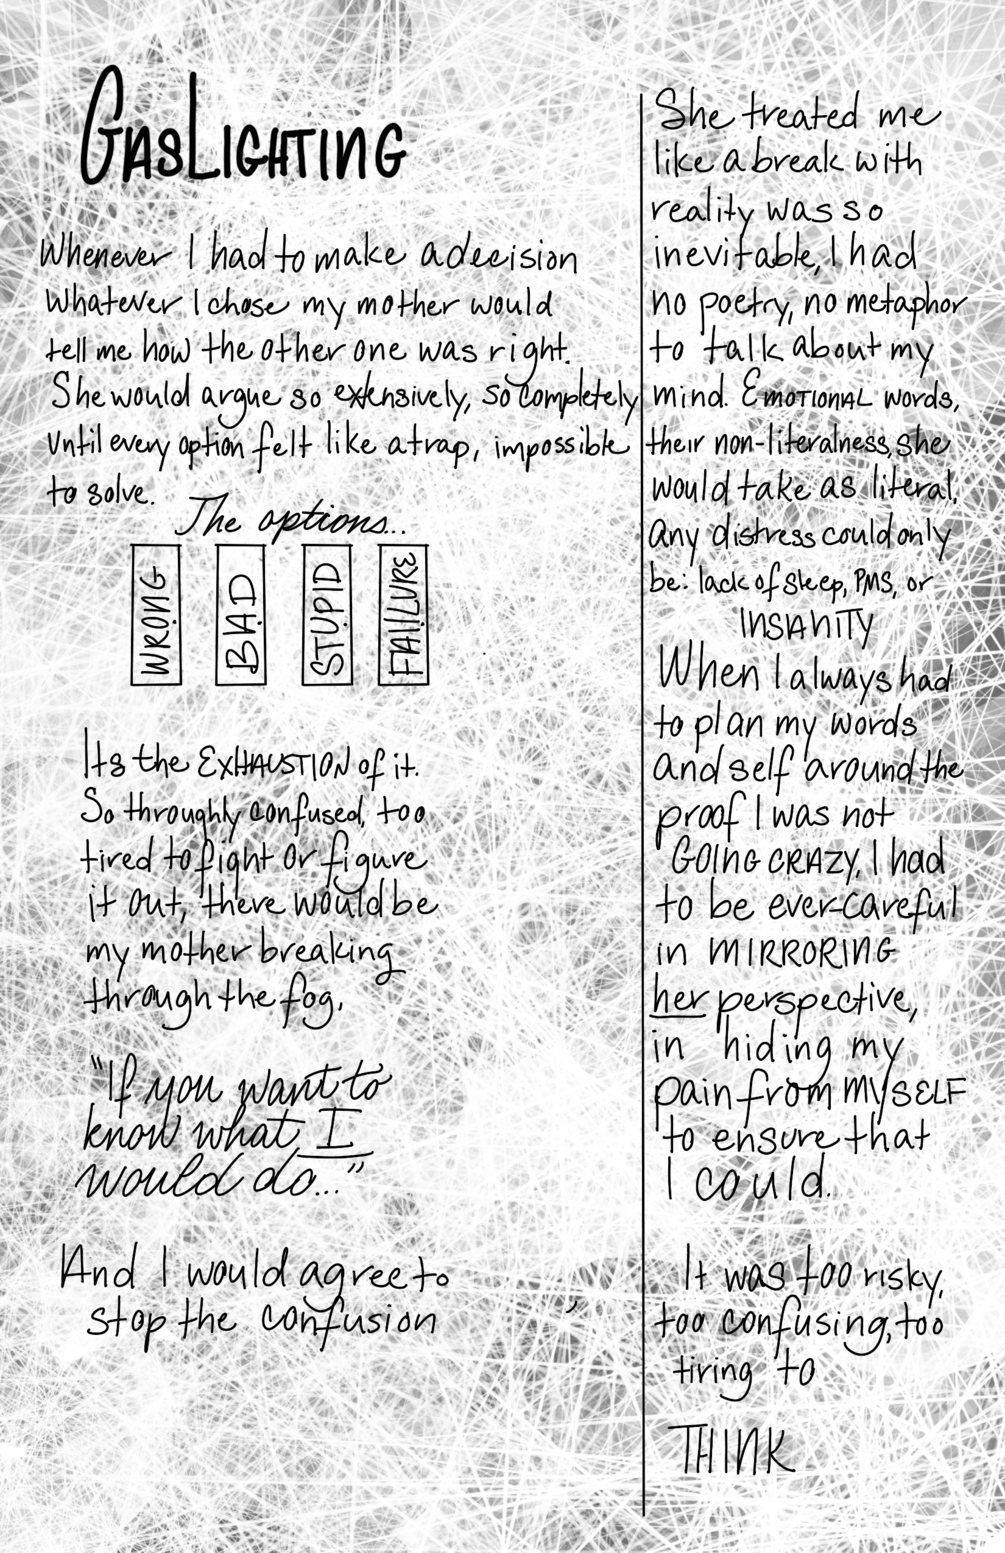 GASLIGHTING
Whenever I had to make a decision
Whatever I chose my mother would
tell me how the other one was right.
She would argue so extensively, so completely
until every option felt like a trap, impossible
to solve.
The options...
WRONG
BAD
STUPID
FAILURE
Its the EXHAUSTION of it.
So throughly confused, too
tired to fight or figure
it out, there would be
my mother breaking
through the fog.
"If you want to
know what I
would do..."
And I would agree to
stop the confusion
She treated me
like a break with
reality was so
inevitable, I had
no poetry, no metaphor
to talk about my
mind. EMOTIONAL words,
their non-literalness, she
would take as literal.
any distress could only
be: lack of sleep, PMS, or
INSANITY
When I always had
to plan my words
and self around the
proof I was not
GOING CRAZY, I had
to be ever-careful
in MIRRORING
her perspective,
in hiding my
pain from mySELF
to ensure that
I could.
It was too risky,
too confusing, too
tiring to
THINK